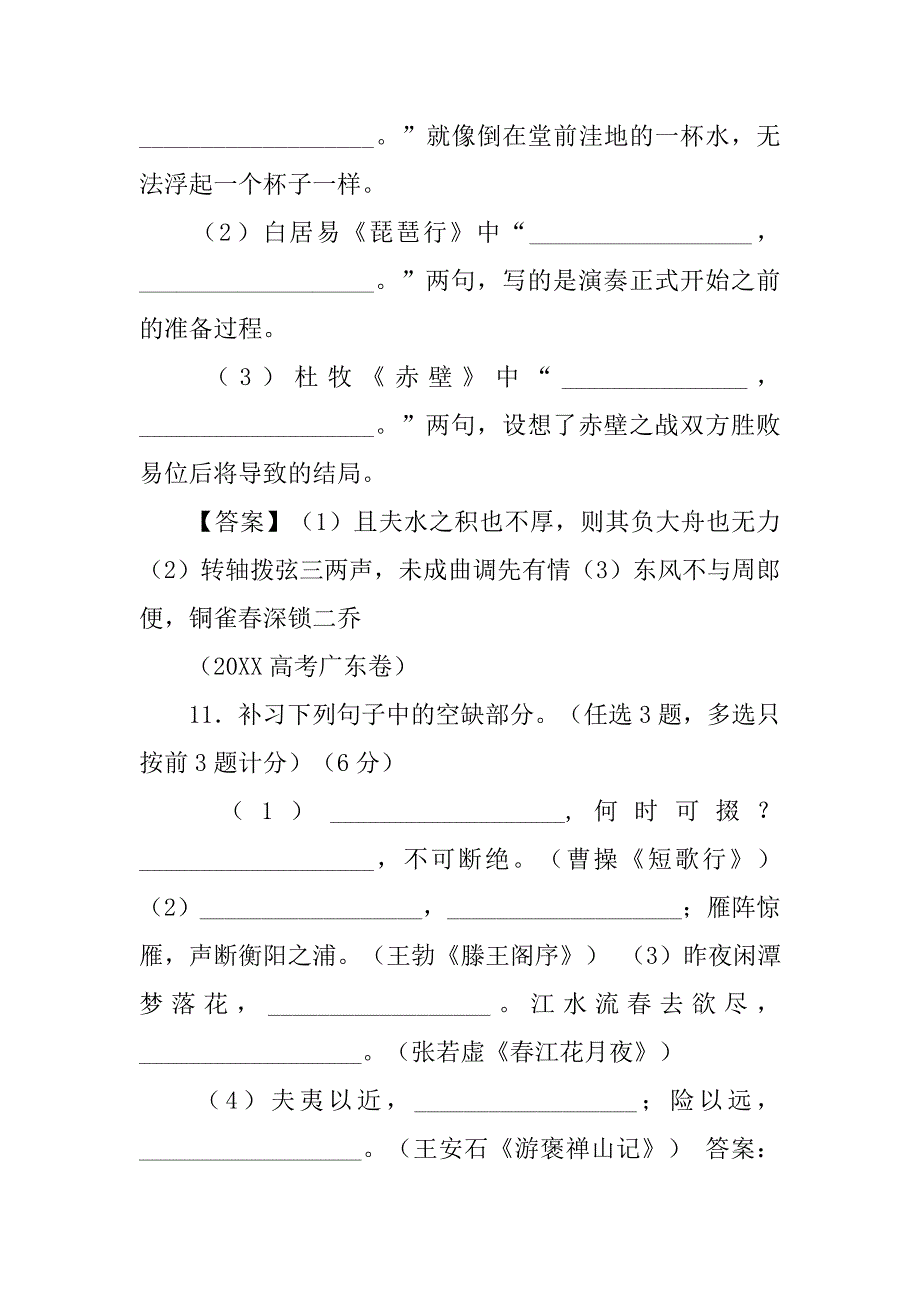 ___________________。”就像倒在堂前洼地的一杯水，无
法浮起一个杯子一样。
（2）白居易《琵琶行》中“__________________，
___________________。”两句，写的是演奏正式开始之前
的准备过程。
（3）杜牧《赤壁》中“_______________，
___________________。”两句，设想了赤壁之战双方胜败
易位后将导致的结局。
【答案】（1）且夫水之积也不厚，则其负大舟也无力
（2）转轴拨弦三两声，未成曲调先有情（3）东风不与周郎
便，铜雀春深锁二乔
（20XX 高考广东卷）
11．补习下列句子中的空缺部分。（任选 3 题，多选只
按前 3 题计分）（6 分）
（1）___________________,何时可掇？
___________________，不可断绝。（曹操《短歌行》）
（2）__________________，___________________；雁阵惊
雁，声断衡阳之浦。（王勃《滕王阁序》） （3）昨夜闲潭
梦落花，__________________。江水流春去欲尽，
__________________。（张若虚《春江花月夜》）
（4）夫夷以近，__________________；险以远，
__________________。（王安石《游褒禅山记》） 答案：